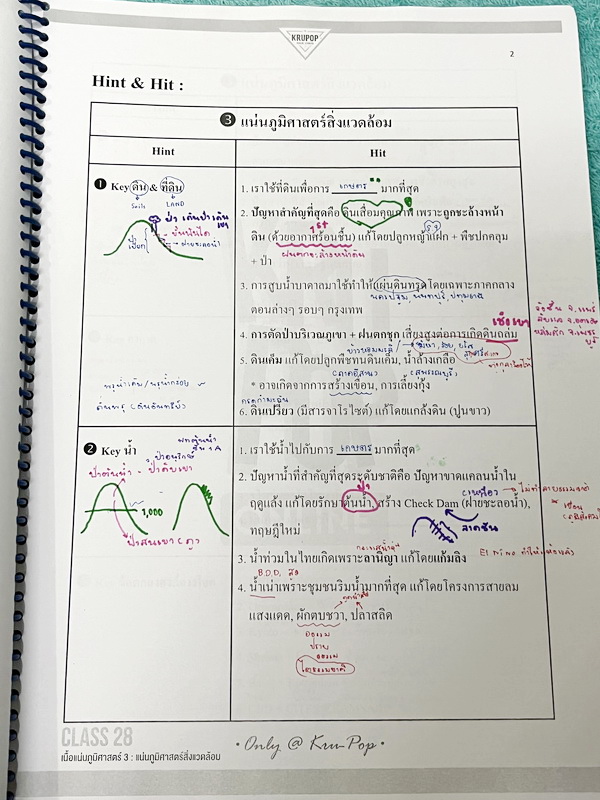 KRUPOP
2
Hint & Hit :
❸ แน่นภูมิศาสตร์สิ่งแวดล้อม
Hint
Hit
❶ Key ดิน & ที่ดิน
Soils LAND
1. เราใช้ที่ดินเพื่อการ เกษตร มากที่สุด
2. ปัญหาสำคัญที่สุดคือ ดินเสื่อมคุณภาพ เพราะถูกชะล้างหน้า
ดิน (ด้วยอากาศร้อนชื้น) แก้โดยปลูกหญ้าแฝก + พืชปกคลุม
+ ป่า
3. การสูบน้ำบาดาลมาใช้ทำให้แผ่นดินทรุดโดยเฉพาะภาคกลาง
ตอนล่างๆ รอบๆ กรุงเทพ
นครปฐม, นนทบุรี, ปทุมธานี
4. การตัดป่าบริเวณภูเขา + ฝนตกชุก เสี่ยงสูงต่อการเกิดดินถล่ม
เชิงเขา
5. ดินเค็ม แก้โดยปลูกพืชทนดินเค็ม, น้ำล้างเกลือ
(ภาคอีสาน)
* อาจเกิดจากการสร้างเขื่อน, การเลี้ยงกุ้ง
กรดกำมะถัน
6. ดินเปรี้ยว (มีสารจาโรไซต์) แก้โดยแกล้งดิน (ปูนขาว)
❷ Key น้ำ
ป่าต้นน้ำ
1,000
1. เราใช้น้ำไปกับการ เกษตร มากที่สุด
2. ปัญหาน้ำที่สำคัญที่สุดระดับชาติคือ ปัญหาขาดแคลนน้ำใน
ฤดูแล้ง แก้โดยรักษาต้นน้ำ, สร้าง Check Dam (ฝายชะลอน้ำ),
ทฤษฎีใหม่
ลาดชัน
3. น้ำท่วมในไทยเกิดเพราะลานีญา แก้โดยแก้มลิง
El Nino ทำให้
B.O.D. สูง
4. น้ำเน่าเพราะชุมชนริมน้ำมากที่สุด แก้โดยโครงการสายลม
แสงแดด, ผักตบชวา, ปลาสลิด
อธรรม
ปราบ
อธรรม
CLASS 28
• Only @ Kru Pop •
เนื้อแน่นภูมิศาสตร์ 3 : แน่นภูมิศาสตร์สิ่งแวดล้อม